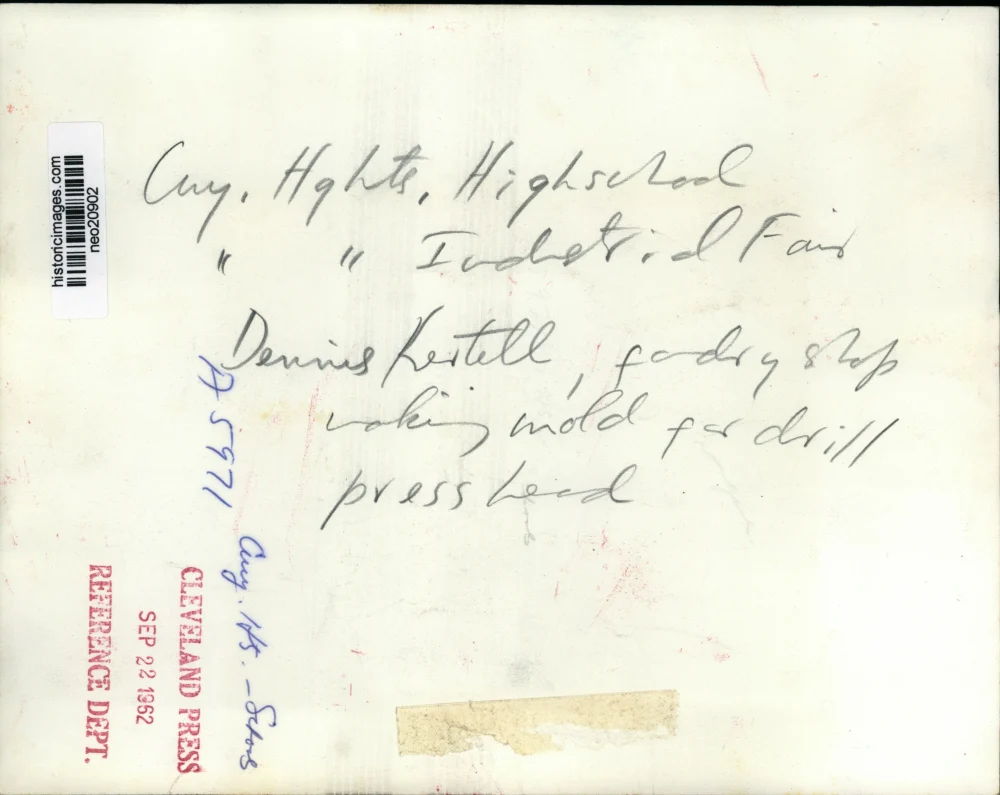 historicimages.com
neo20902
Cuy. Hghts. Highschool
" " Industrial Fair
Dennis Kertell, fondry shop
making mold for drill
press head
A 5971 Cuy. Hts. - Schools
CLEVELAND PRESS
SEP 22 1962
REFERENCE DEPT.